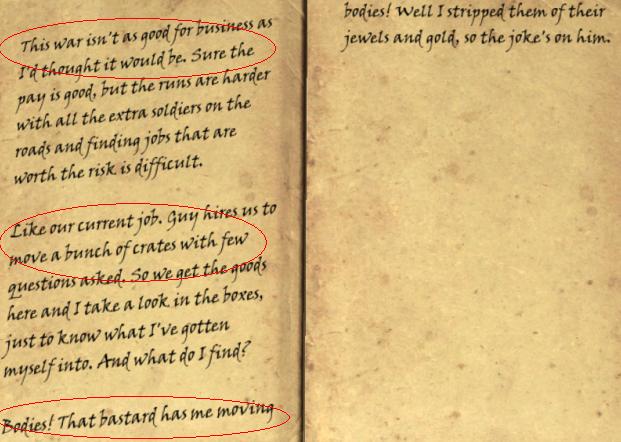 This war isn't as good for business as
I'd thought it would be. Sure the
pay is good, but the runs are harder
with all the extra soldiers on the
roads and finding jobs that are
worth the risk is difficult.
Like our current job. Guy hires us to
move a bunch of crates with few
questions asked. So we get the goods
here and I take a look in the boxes,
just to know what I've gotten
myself into. And what do I find?
Bodies! That bastard has me moving
bodies! Well I stripped them of their
jewels and gold, so the joke's on him.